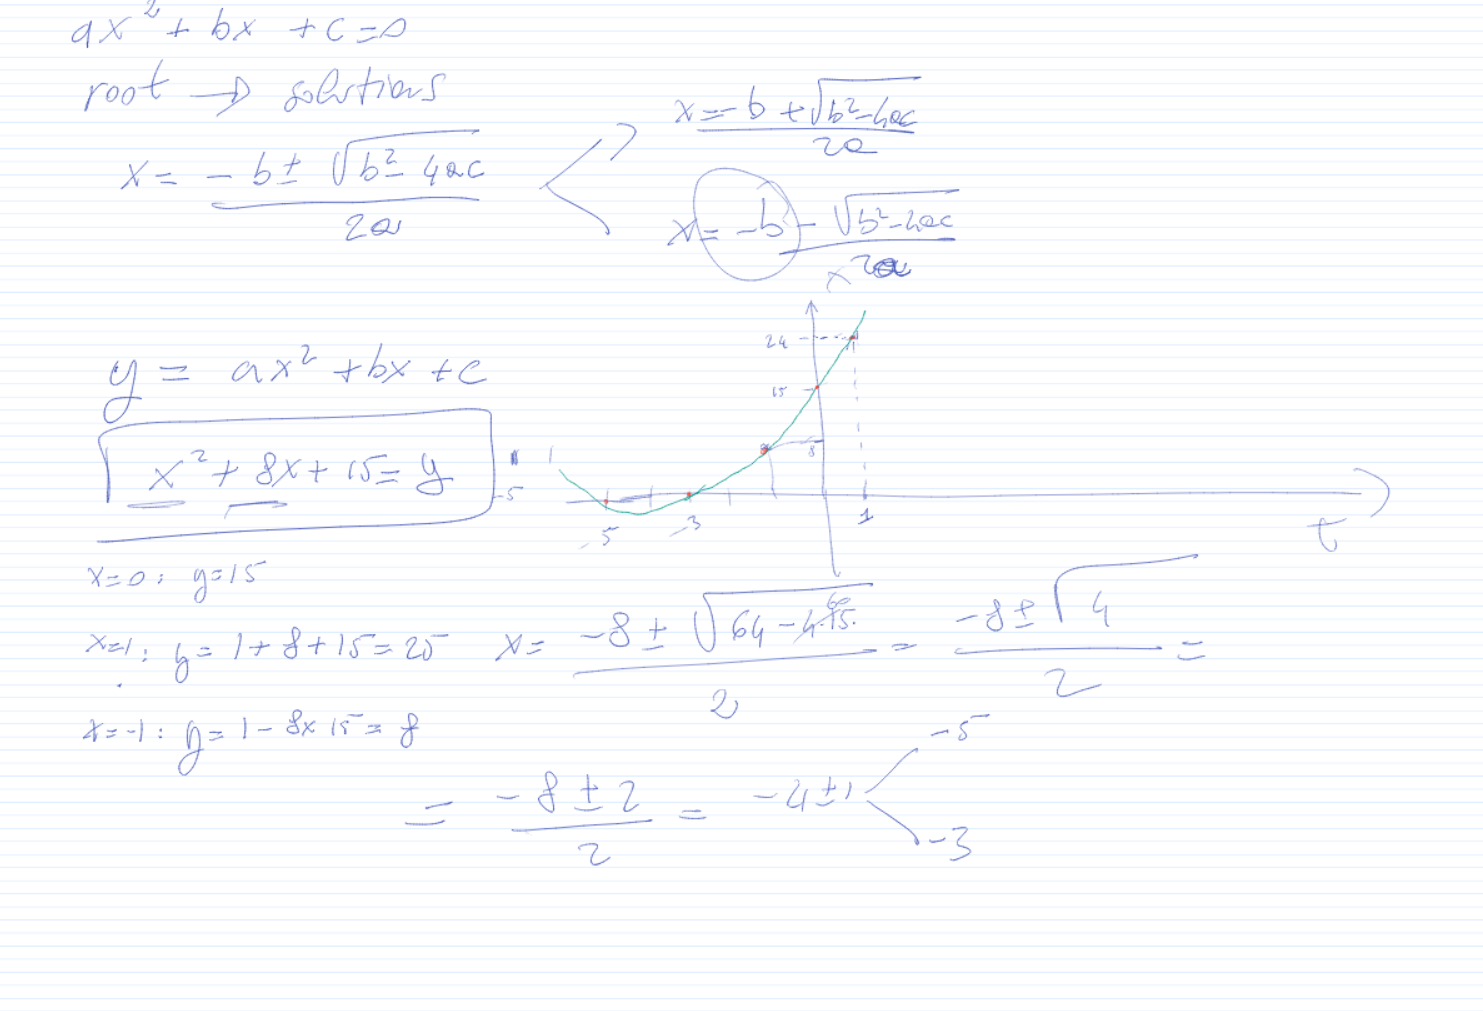 ax² + bx + c = 0
root → solutions
x = (-b ± √(b² - 4ac)) / 2a
x = (-b + √(b² - 4ac)) / 2a
x = (-b - √(b² - 4ac)) / 2a
x
y = ax² + bx + c
x² + 8x + 15 = y
24
15
8
-5
-5
-3
1
t
x=0: y=15
x=1: y = 1 + 8 + 15 = 25
x = (-8 ± √(64 - 4·15)) / 2 = (-8 ± √4) / 2 =
60
x=-1: y = 1 - 8x 15 = 8
= (-8 ± 2) / 2 = -4 ± 1
-5
-3